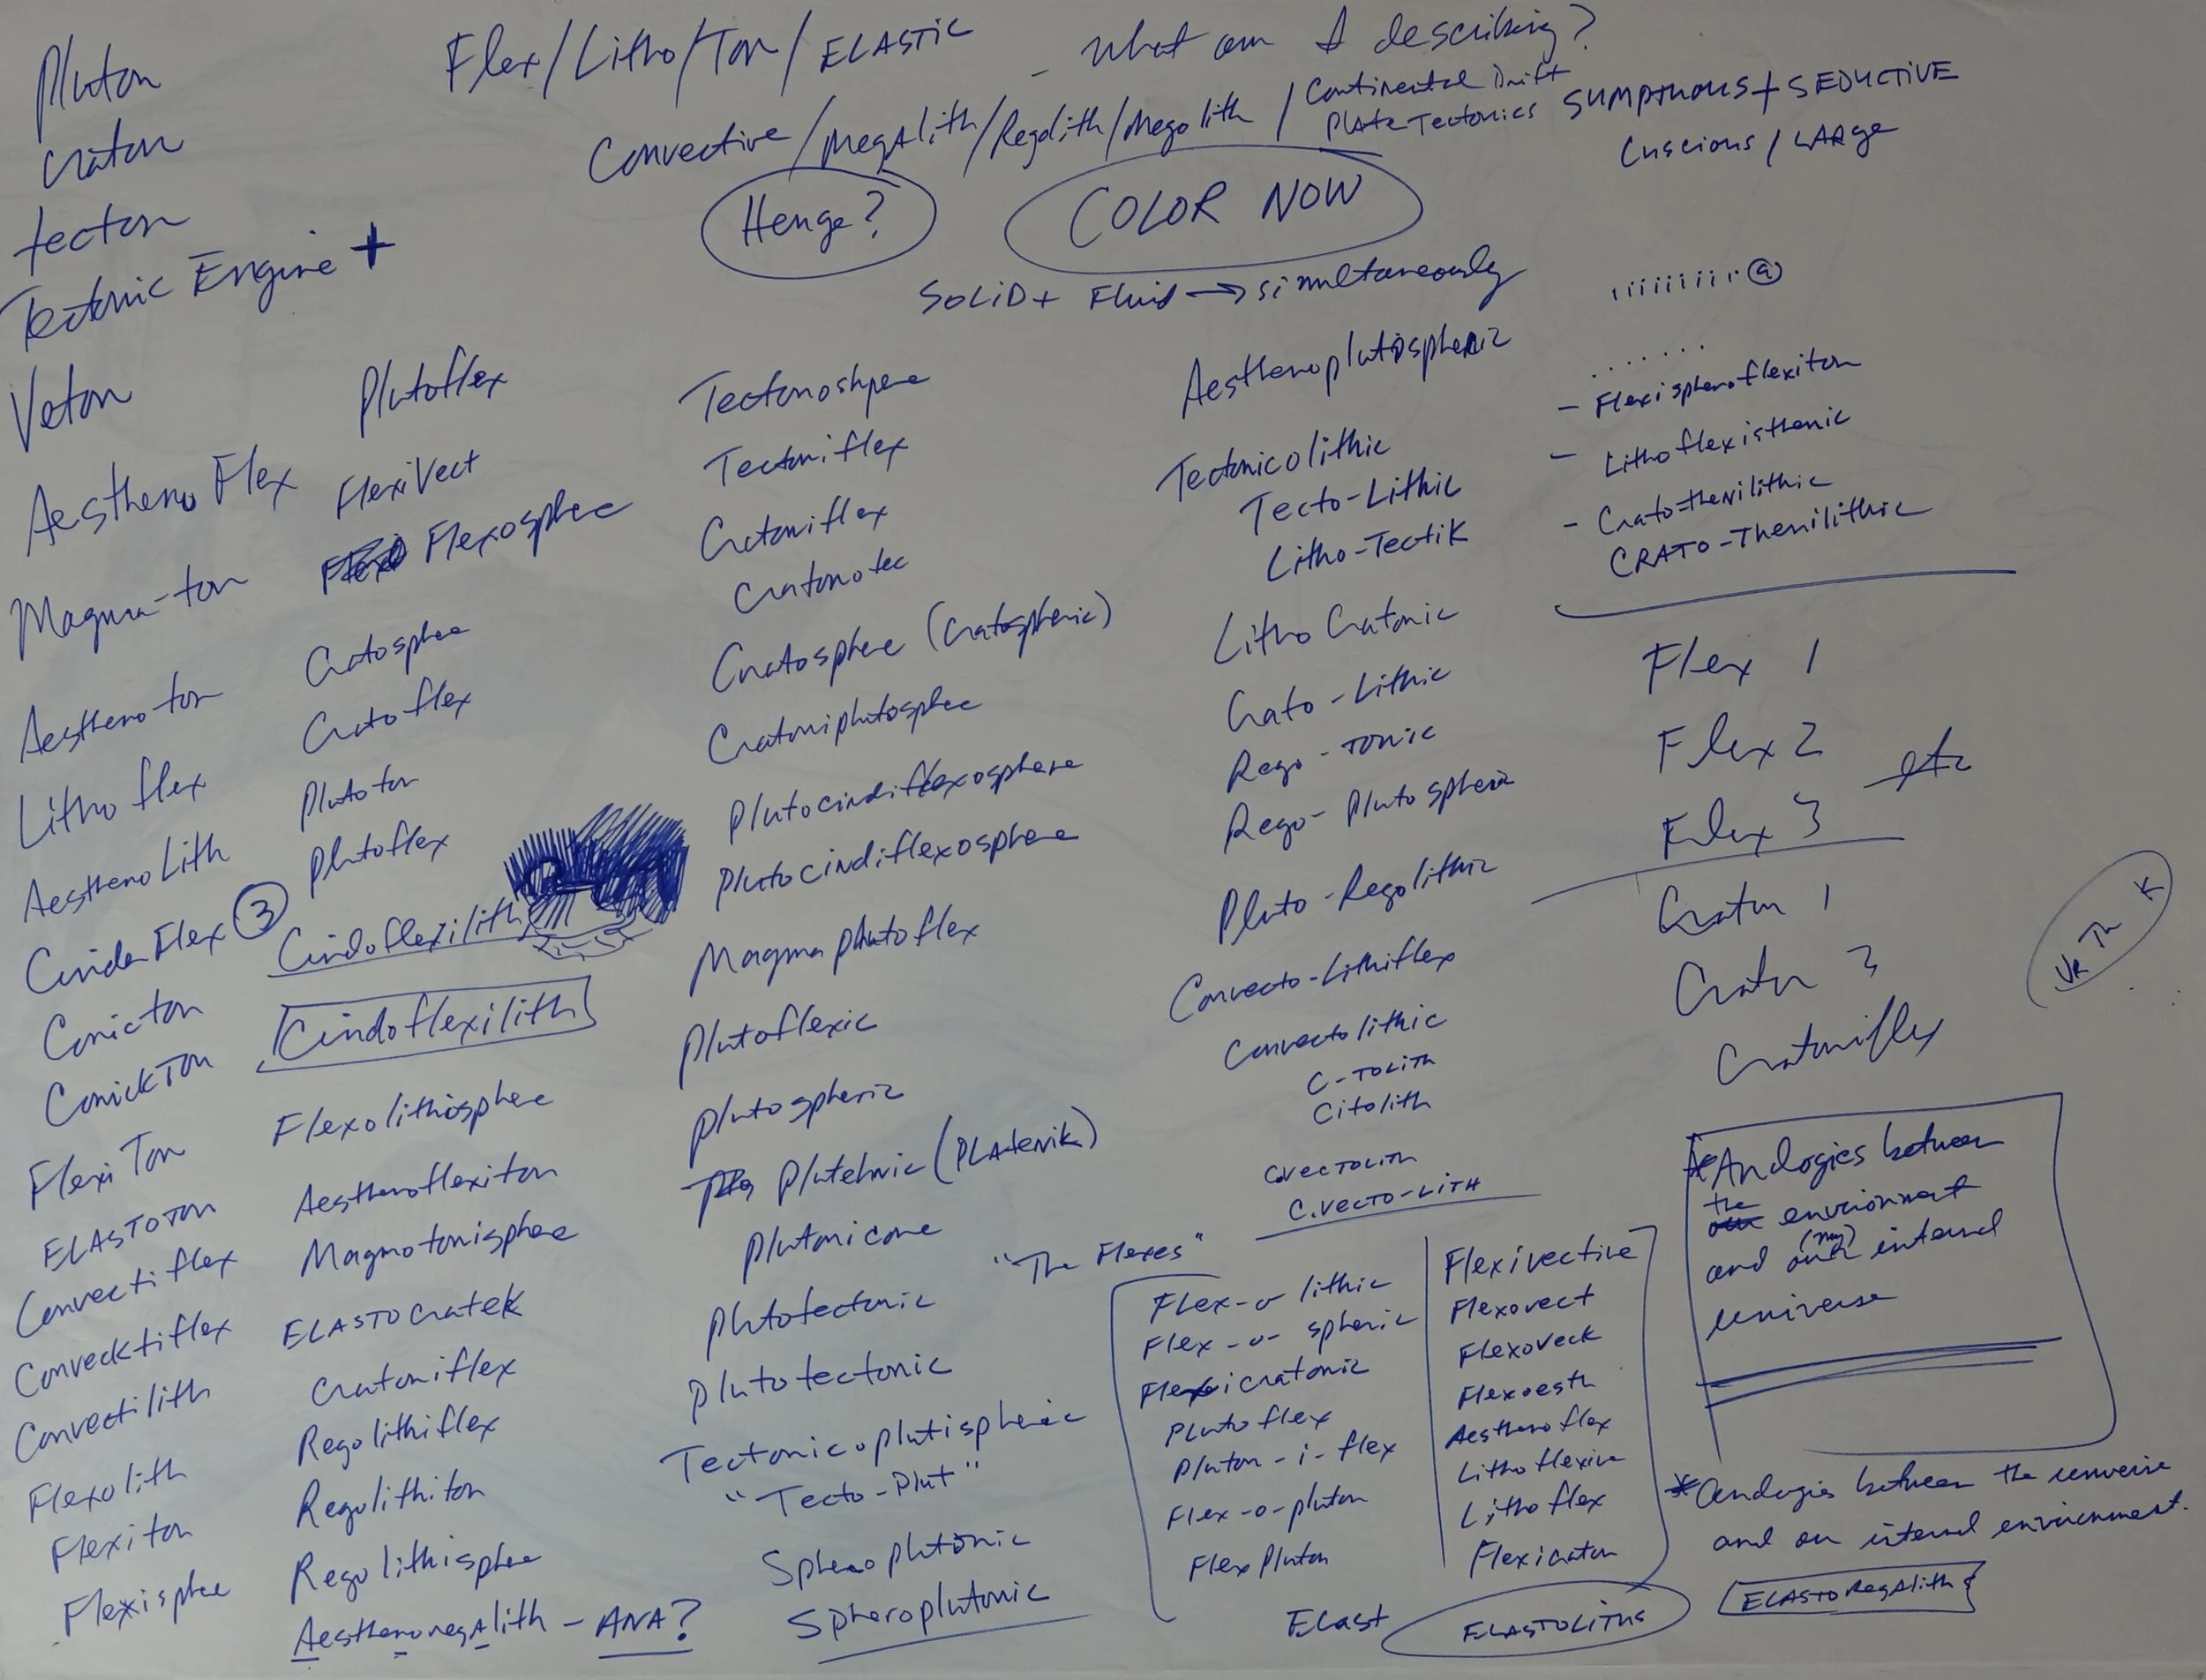 Flex/Litho/Ton/ELASTIC - what am I describing?
Convective/megAlith/Regolith/Megolith/Continental Drift
Plate Tectonics
SUMPTHOUS + SEDUCTIVE
Luscious / LARge
Henge?
COLOR NOW
SOLID + Fluid → simultaneously
Pluton
Craton
tecton
Tectonic Engine +
Veton
Aestheno Flex
Magma-ton
Aesthenoton
Litho flex
AesthenoLith
Cinder Flex ③
Conicton
ConickTon
FlexiTon
ELASTOTON
Convectiflex
Convecktiflex
Convectilith
Flexolith
Flexiton
Flexisphee
Plutoflex
FlexiVect
Flexosphee
Cratosphee
Crato flex
Plutoton
Plutoflex
Cindoflexilith
Cindoflexilith
Flexolithosphee
Aesthenoflexiton
Magmotonisphee
ELASTOCratek
Cratoniflex
Regolithiflex
Regolithiton
Regolithisphee
AesthenoregAlith - ANA?
Tectonoshpee
Tectoniflex
Cratoniflex
Cratonotec
Cratosphere (Cratospheric)
Cratoniplutosphee
Plutocindiflexosphere
Plutocindiflexosphere
Magmaplutoflex
Plutoflexic
Plutospheric
Plutehnic (PLAtenik)
Plutonicone
Plutotectonic
Plutotectonic
Tectonicoplutispheric
"Tecto-Plut"
Spheroplutonic
Spheroplutonic
Aesthenoplutospheric
Tectonicolithic
Tecto-Lithic
Litho-Tectik
Litho Cratonic
Crato-Lithic
Rego-Tonic
Rego-Plutospheric
Pluto-Regolithic
Convecto-Lithiflex
Convectolithic
C-TOLITH
Citolith
C.VECTOLITH
C.VECTO-LITH
"The Flexes"
Flex-o lithic
Flex-o-spheric
Flexicratonic
Pluto flex
Pluton-i-flex
Flex-o-pluton
Flex Pluton
Flexivective
Flexovect
Flexoveck
Flexoesth
Aesthenoflex
Lithoflexive
Litho flex
Flexicraton
Elast
ELASTOLITHS
- Flexispheroflexiton
- Lithoflexisthenic
- Crato-thenilithic
CRATO-Thenilithic
Flex 1
Flex 2
Flex 3
etc
Craton 1
Craton 3
Cratoniflex
*Analogies between
the envrionment
and our (my) internal
universe
*Analogies between the universe
and our internal environment.
ELASTORegAlith